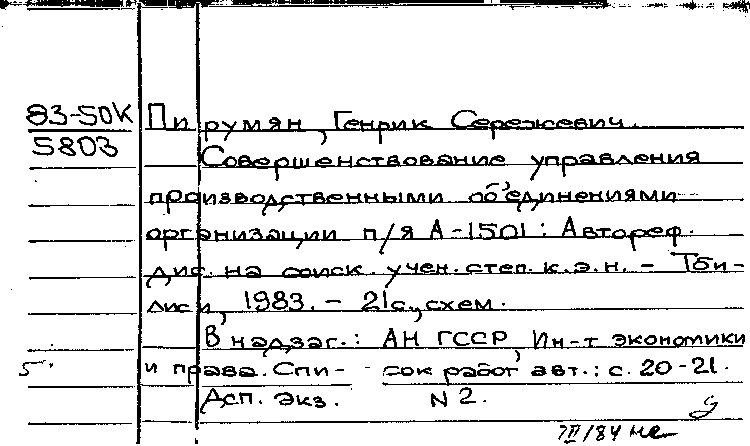 83-50К Пирумян, Генрик Сережевич.
5803 Совершенствование управления
производственными объединениями
организации п/я А-1501: Автореф.
дис. на соиск. учен. степ. к.э.н. - Тби-
лиси, 1983. - 21с., схем.
В надзаг.: АН ГССР, Ин-т экономики
5 и права. Спи- сок работ авт.: с. 20-21.
Дсп. Экз. N 2.